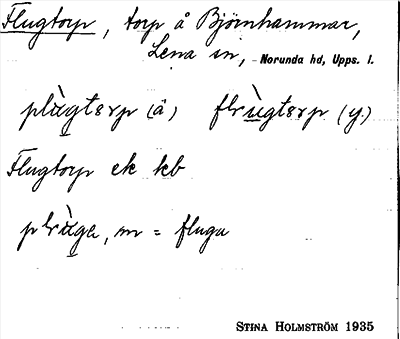 Flugtorp, torp å Björnhammar,
Lena sn, Norunda hd, Upps. l.
(å) (y)
Flugtorp ek kb
m = fluga
STINA HOLMSTRÖM 1935